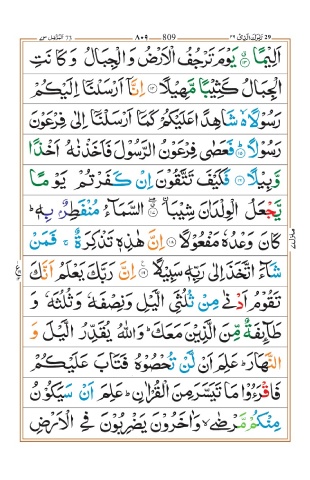 اَلِيۡمًا ۙ‏﴿۱۳﴾ يَوۡمَ تَرۡجُفُ الۡاَرۡضُ وَالۡجِبَالُ وَكَانَتِ
الۡجِبَالُ كَثِيۡبًا مَّهِيۡلًا ﴿۱۴﴾ اِنَّاۤ اَرۡسَلۡنَاۤ اِلَيۡكُمۡ
رَسُوۡلًا ۙ شَاهِدًا عَلَيۡكُمۡ كَمَاۤ اَرۡسَلۡنَاۤ اِلٰى فِرۡعَوۡنَ
رَسُوۡلًا ؕ‏﴿۱۵﴾ فَعَصٰى فِرۡعَوۡنُ الرَّسُوۡلَ فَاَخَذۡنٰهُ اَخۡذًا
وَّبِيۡلًا‏ ﴿۱۶﴾ فَكَيۡفَ تَتَّقُوۡنَ اِنۡ كَفَرۡتُمۡ يَوۡمًا
يَّجۡعَلُ الۡوِلۡدَانَ شِيۡبَا ۖ‏﴿۱۷﴾ اۨلسَّمَآءُ مُنۡفَطِرٌۢ بِهٖ‌ؕ
كَانَ وَعۡدُهٗ مَفۡعُوۡلًا‏ ﴿۱۸﴾ اِنَّ هٰذِهٖ تَذۡكِرَةٌ ‌ۚ فَمَنۡ
شَآءَ اتَّخَذَ اِلٰى رَبِّهٖ سَبِيۡلًا ﴿۱۹﴾ اِنَّ رَبَّكَ يَعۡلَمُ اَنَّكَ
تَقُوۡمُ اَدۡنٰى مِنۡ ثُلُثَىِ الَّيۡلِ وَنِصۡفَهٗ وَثُلُثَهٗ وَ
طَآئِفَةٌ مِّنَ الَّذِيۡنَ مَعَكَ‌ؕ وَاللّٰهُ يُقَدِّرُ الَّيۡلَ وَ
النَّهَارَ‌ؕ عَلِمَ اَنۡ لَّنۡ تُحۡصُوۡهُ فَتَابَ عَلَيۡكُمۡ
فَاقۡرَءُوۡا مَا تَيَسَّرَ مِنَ الۡقُرۡاٰنِ‌ؕ عَلِمَ اَنۡ سَيَكُوۡنُ
مِنۡكُمۡ مَّرۡضٰى‌ۙ وَاٰخَرُوۡنَ يَضۡرِبُوۡنَ فِى الۡاَرۡضِ